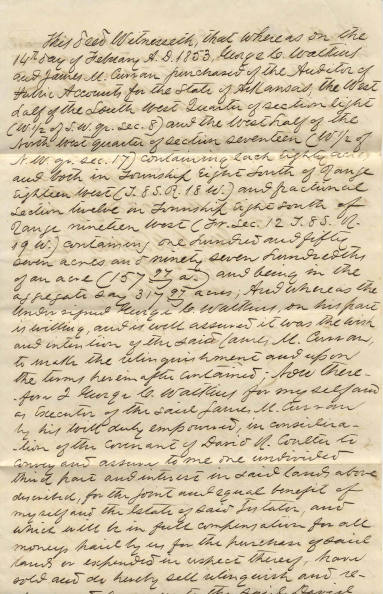 This deed Witnesseth, that whereas on the
14th day of February A.D. 1853, George C. Watkins
and James M. Curran purchased of the Auditor of
Public Accounts for the State of Arkansas, the West
half of the South West Quarter of section Eight
(W½ of S.W. qr. sec. 8) and the West half of the
North West quarter of section seventeen (W½ of
N.W. qr. sec. 17) containing each Eighty acres
and both in Township Eight South of Range
Eighteen West (T. 8 S. R. 18 W.) and fractional
Section twelve in Township Eight South of
Range nineteen West (Fr. Sec. 12 T. 8 S. R.
19 W.) containing one hundred and fifty
seven acres and ninety seven hundredths
of an acre (157 97/100 ac) and being in the
aggregate say 317 97/100 acres; And whereas the
undersigned George C. Watkins, on his part
is willing, and is well assured it was the wish
and intention of the said James M. Curran,
to make the relinquishment and upon
the terms herein after contained: Now there-
fore I George C. Watkins for my self and
as Executor of the said James M. Curran
by his will duly empowered, in considera-
tion of the covenant of David N. Coulter to
convey and assure to me one undivided
third part and interest in said lands above
described, for the joint and equal benefit of
myself and the Estate of said Testator, and
which will be in full compensation for all
moneys paid by us for the purchase of said
lands or expended in respect thereof, have
sold and do hereby sell relinquish and re-
the said David